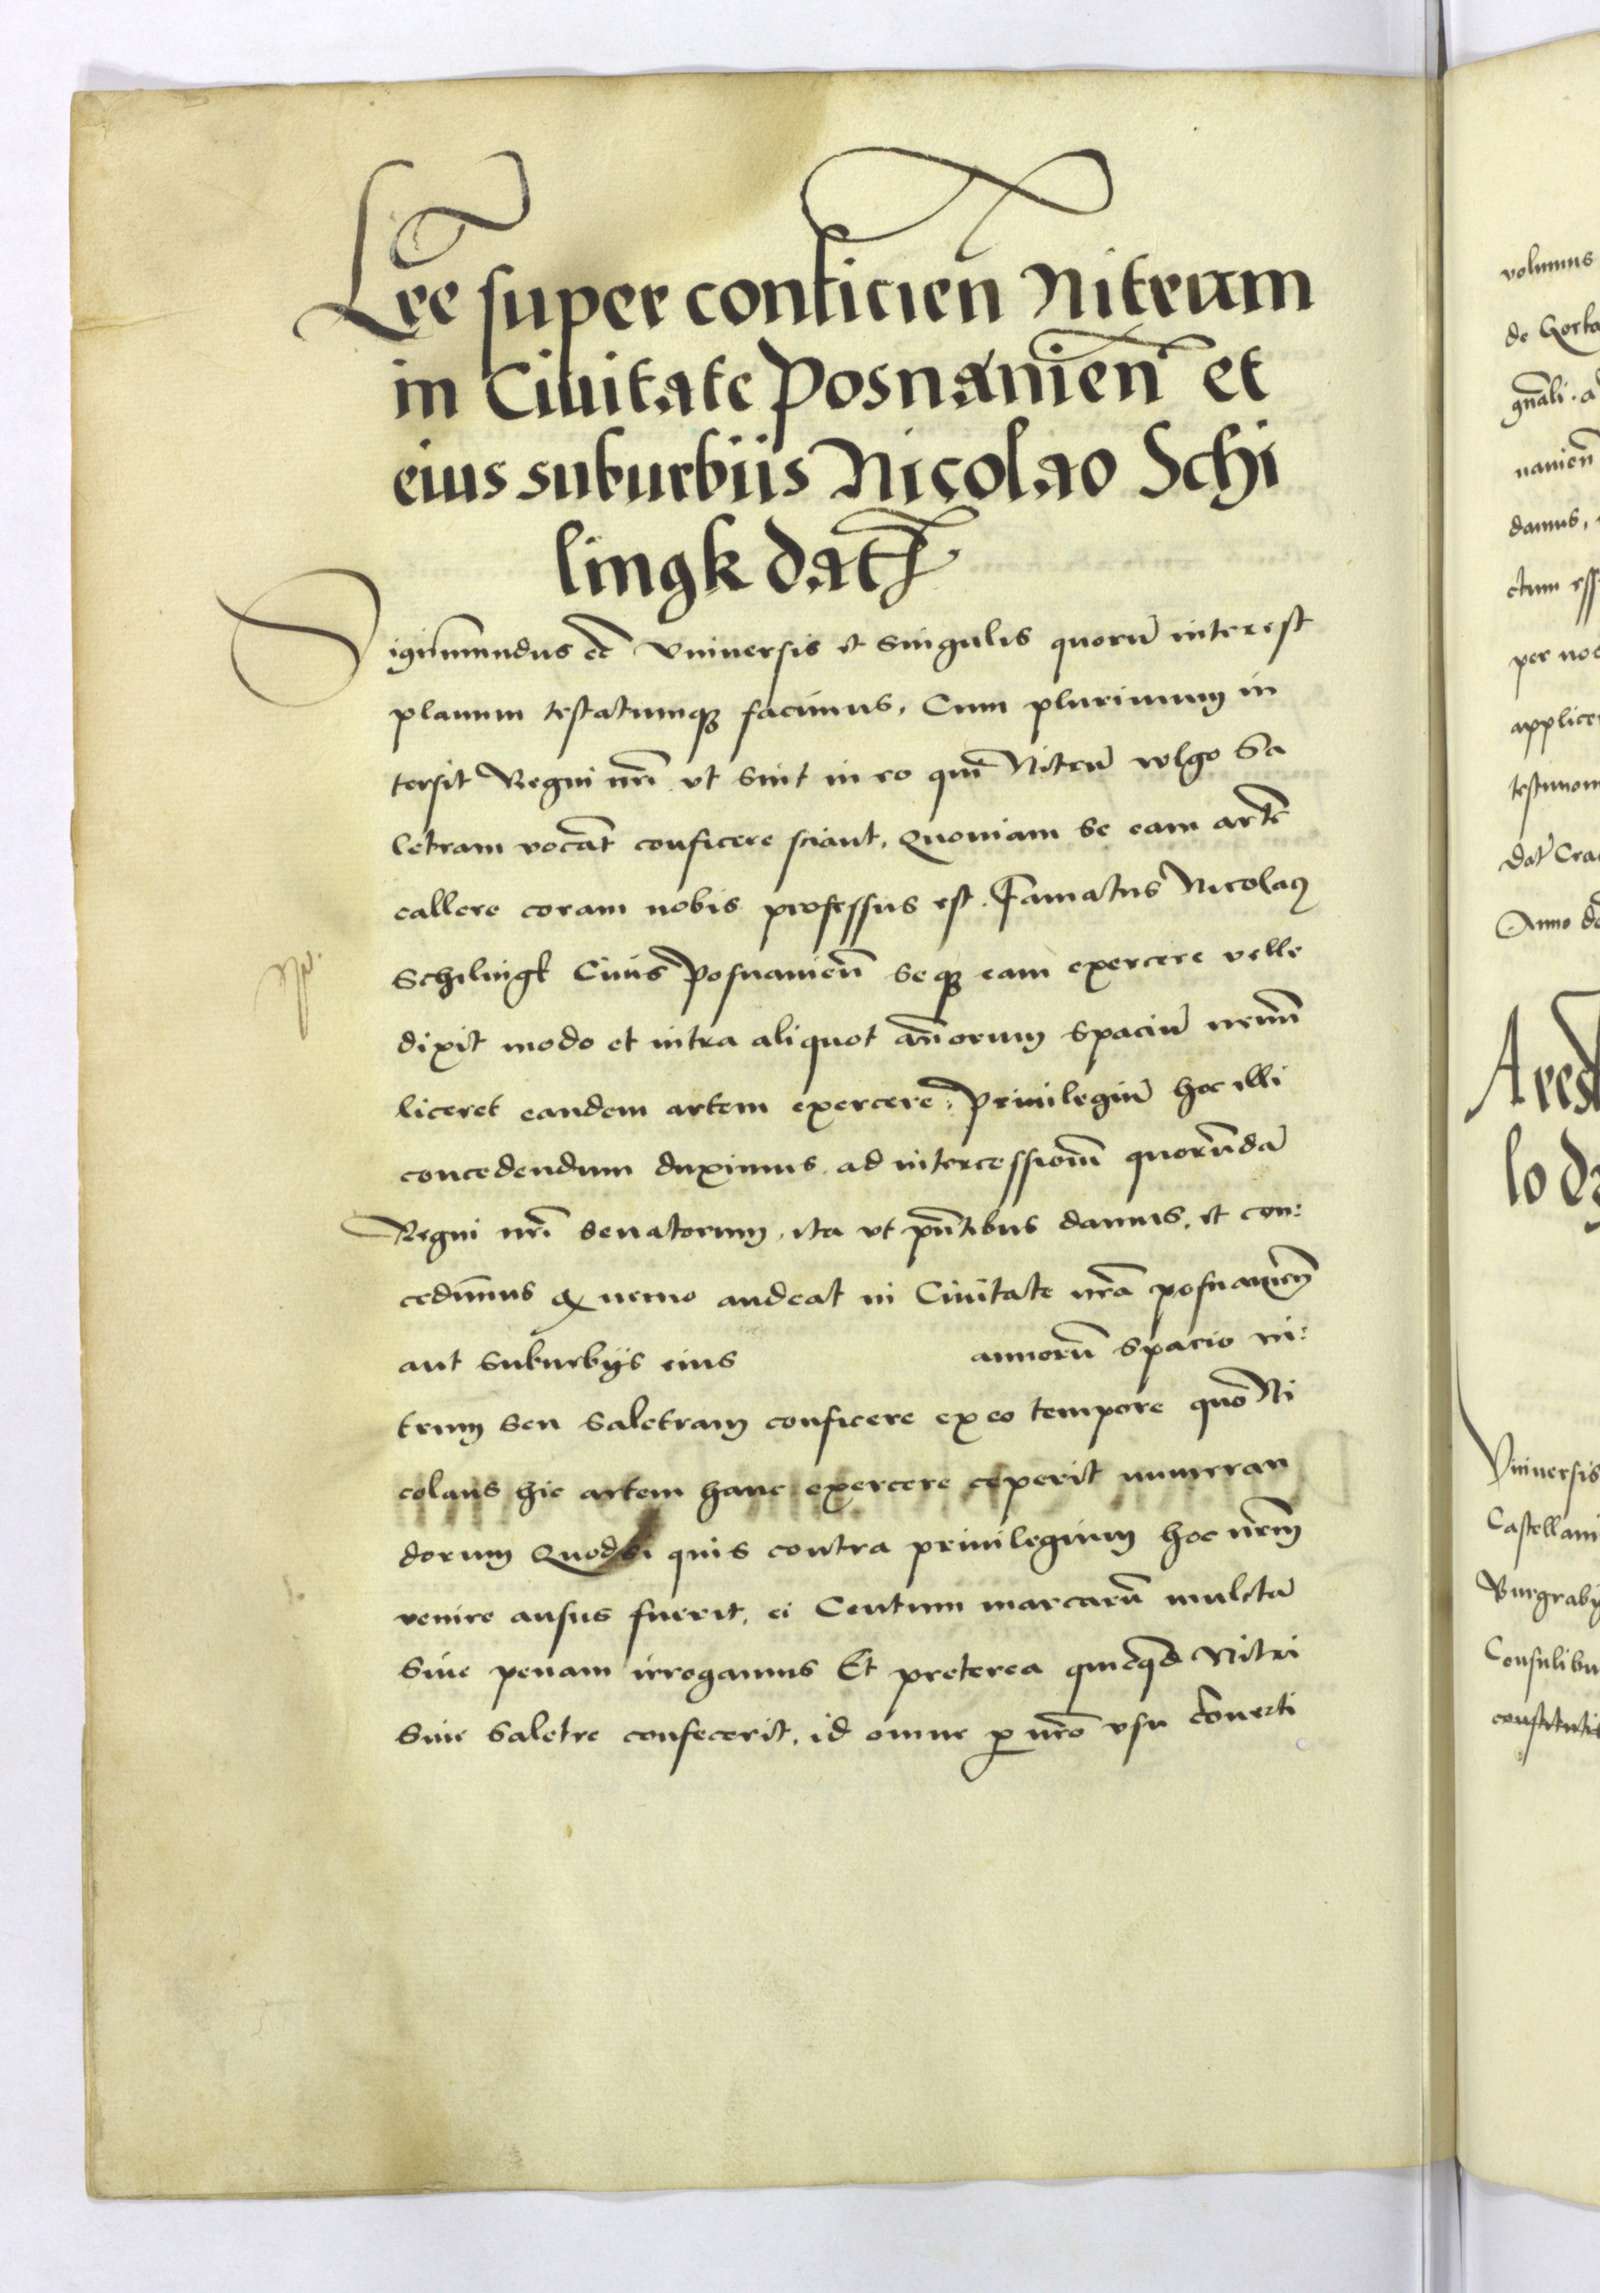 Lre super conficien Nitrum
in Ciuitate Posnanien et
eius suburbiis Nicolao Schi
lingk dat
Sigismundus etc Vniuersis et singulis quorum̄ interest
planum testatumq facimus, Cum plurimum in
tersit Regni nri vt sint in eo qui Nitrū volgo Sa
letram vocāt conficere sciant, Quoniam se eam artē
callere coram nobis professus est. Famatus Nicolaus
Schilingk Ciuis Posnanien seq eam exercere velle
dixit modo et intra aliquot an̄orum spaciū nemini
liceret eandem artem exercere, Priuilegiū hoc illi
concedendum duximus ad intercessionē quorūdā
Regni nri senatorum, ita vt pn̄tibus damus, et con:
cedimus q nemo audeat in Ciuitate nrā posnanien
aut suburbijs eius annorū spacio ni:
trum seu saletram conficere ex eo tempore quo Ni
colaus hic artem hanc exercere ceperit numeran
dorum Quodsi quis contra priuilegium hoc nrm
venire ausus fuerit, ei Centum marcarū mulctā
siue penam irrogamus Et preterea quicqd Nitri
siue saletre confecerit, id omne p nro vsu conuerti
volumus
de Gorka
gnāli. a
nanien
damus,
ctum esse
per noc
applicer
testimon
Dat Cra
Anno do
Ares
lo da
Vniuersis
Castellani
Burgrabij
Consulibu
constitutis